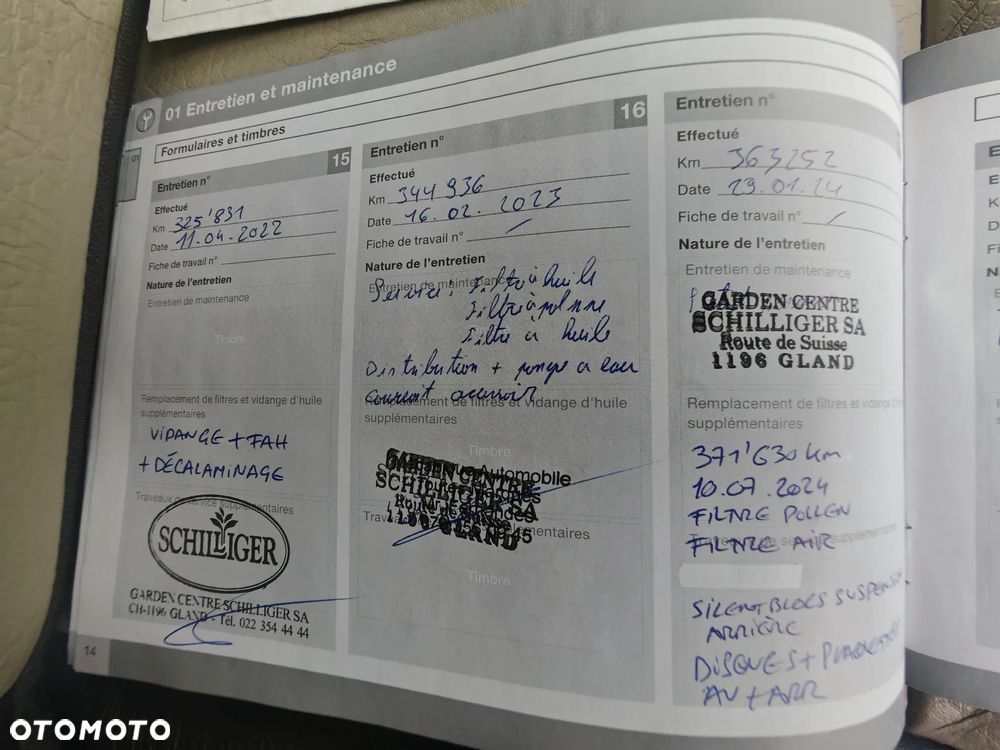 01 Entretien et maintenance
Formulaires et timbres
Entretien n° 15
Effectué
Km 325'831
Date 11.04.2022
Fiche de travail n°
Nature de l'entretien
Entretien de maintenance
Timbre
Remplacement de filtres et vidange d'huile
supplémentaires
VIDANGE + FAH
+ DÉCALAMINAGE
Travaux de service supplémentaires
SCHILLIGER
GARDEN CENTRE SCHILLIGER SA
CH-1196 GLAND - Tél. 022 354 44 44
14
Entretien n° 16
Effectué
Km 344 936
Date 16.02.2023
Fiche de travail n° /
Nature de l'entretien
Entretien de maintenance
Service: Filtre à huile
Filtre à
Filtre à huile
Distribution + pompe a eau
Remplacement de filtres et vidange d'huile
supplémentaires
Timbre
Automobile
GARDEN CENTRE
SCHILLIGER SA
Route de Suisse
GLAND
supplémentaires
Timbre
Entretien n°
Effectué
Km 363252
Date 29.01.24
Fiche de travail n° /
Nature de l'entretien
Entretien de maintenance
GARDEN CENTRE
SCHILLIGER SA
Route de Suisse
1196 GLAND
Remplacement de filtres et vidange
supplémentaires
371'630 km
10.07.2024
FILTRE POLLEN
FILTRE AIR
SILENTBLOCS
ARRIÈRE
DISQUES +
AV + ARR
OTOMOTO